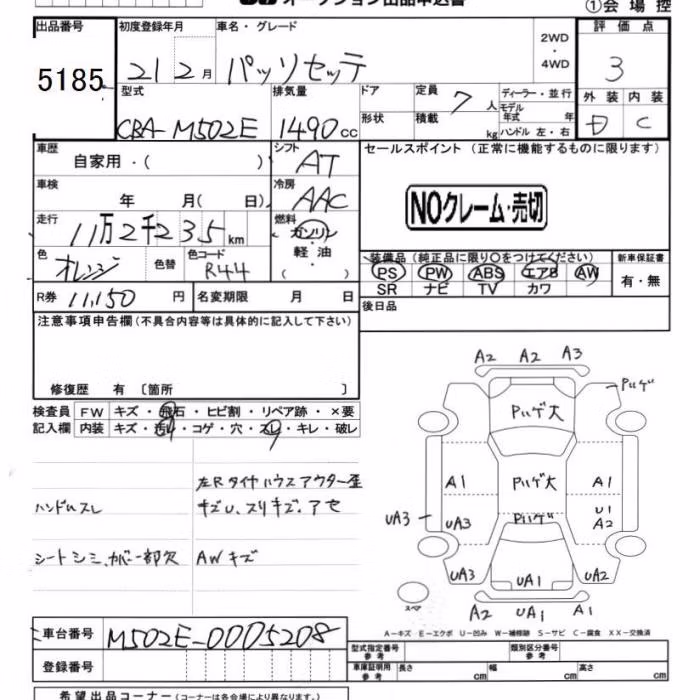 オークション出品申込書
①会場控
出品番号 初度登録年月 車名・グレード 2WD・4WD 評価点
5185 21 2月 パッソセッテ 3
型式 排気量 ドア 定員 7人 ディーラー・並行 外装 内装
CBA-M502E 1490cc 形状 積載 kg モデル年式 年 ハンドル 左・右 D C
車歴 自家用・( ) シフト AT セールスポイント(正常に機能するものに限ります)
車検 年 月( 日) 冷房 AAC NOクレーム・売切
走行 11万2千235km 燃料 ガソリン・軽油・( )
色 オレンジ 色替 色コード R44 装備品(純正品に限り○をつけてください) 新車保証書
PS PW ABS エアB AW 有・無
SR ナビ TV カワ
R券 11,150円 名変期限 月 日 後日品
注意事項申告欄(不具合内容等は具体的に記入して下さい)
修復歴 有 〔箇所 〕
検査員 FW キズ・飛石・ヒビ割・リペア跡・×要
記入欄 内装 キズ・汚れ・コゲ・穴・スレ・キレ・破レ
左Rタイヤハウスアウター歪
ハンドルスレ キズU、スリキズ・アセ
シートシミ、カバー一部欠 AWキズ
A2 A2 A3
Pハゲ大 Pハゲ
A1 Pハゲ大 A1
UA3 UA3 Pハゲ U1 A2
UA3 UA1 UA2
スペア A2 UA1 A1
A-キズ E-エクボ U-凹み W-補修跡 S-サビ C-腐食 XX-交換済
車台番号 M502E-0005208
登録番号
型式指定番号 参考 類別区分番号 参考
車庫証明用 参考 長さ cm 幅 cm 高さ cm
希望出品コーナー(コーナーは各会場により異なります。)